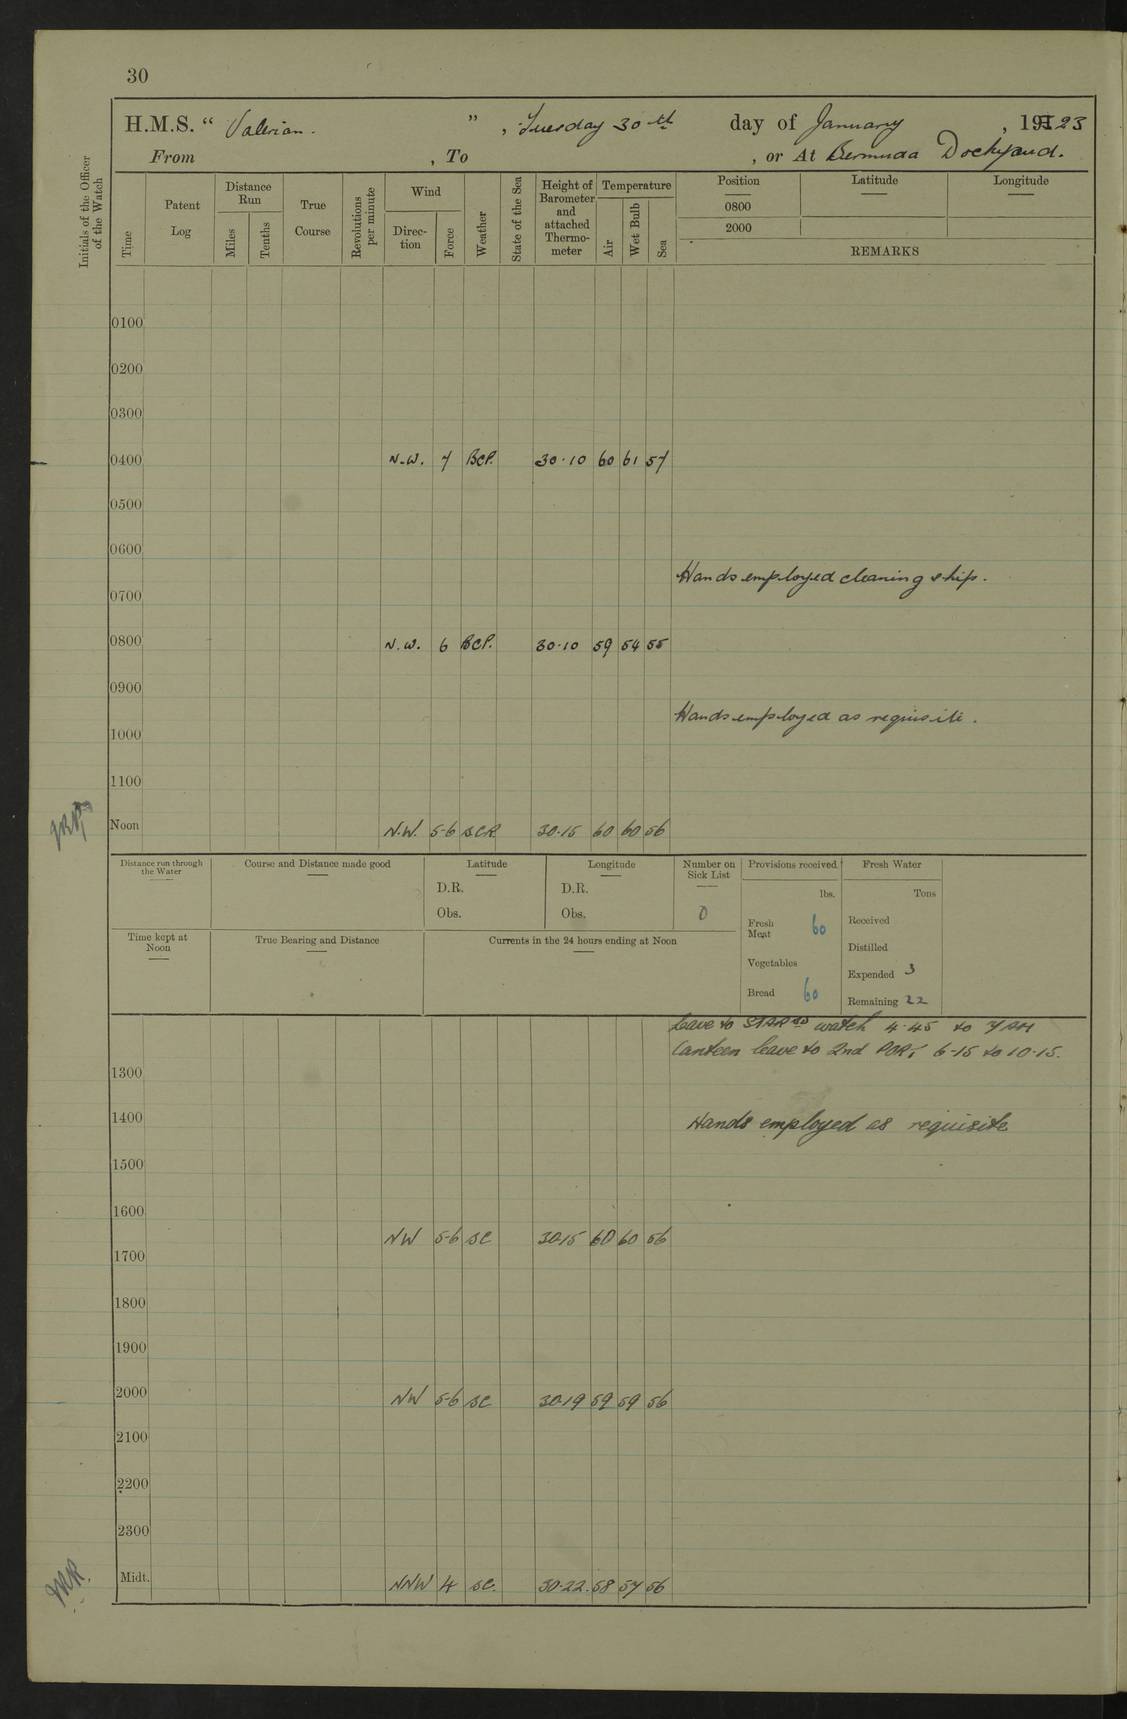 30
H.M.S. “ Valerian. ” , Tuesday 30th day of January , 1923
From , To , or At Bermuda Dockyard.
Initials of the Officer of the Watch
Time
Patent Log
Distance Run
Miles
Tenths
True Course
Revolutions per minute
Wind
Direction
Force
Weather
State of the Sea
Height of Barometer and attached Thermometer
Temperature
Air
Wet Bulb
Sea
Position Latitude Longitude
0800
2000
REMARKS
0100
0200
0300
0400 N.W. 7 BCP. 30.10 60 61 57
0500
0600
Hands employed cleaning ship.
0700
0800 N.W. 6 BCP. 30.10 59 54 55
0900
Hands employed as requisite.
1000
1100
Noon N.W. 5-6 BCR. 30.15 60 60 56
Distance run through the Water
Course and Distance made good
Latitude
D.R.
Obs.
Longitude
D.R.
Obs.
Number on Sick List
0
Provisions received
lbs.
Fresh Meat 60
Vegetables
Bread 60
Fresh Water
Tons
Received
Distilled
Expended 3
Remaining 22
Time kept at Noon
True Bearing and Distance
Currents in the 24 hours ending at Noon
Leave to STARBD watch 4.45 to 7 AM
Canteen leave to 2nd PORT 6-15 to 10-15.
1300
1400 Hands employed as requisite
1500
1600
NW 5-6 BC 30.15 60 60 56
1700
1800
1900
2000 NW 5-6 BC 30.19 59 59 56
2100
2200
2300
Midt. NNW 4 BC. 30.22 58 57 56